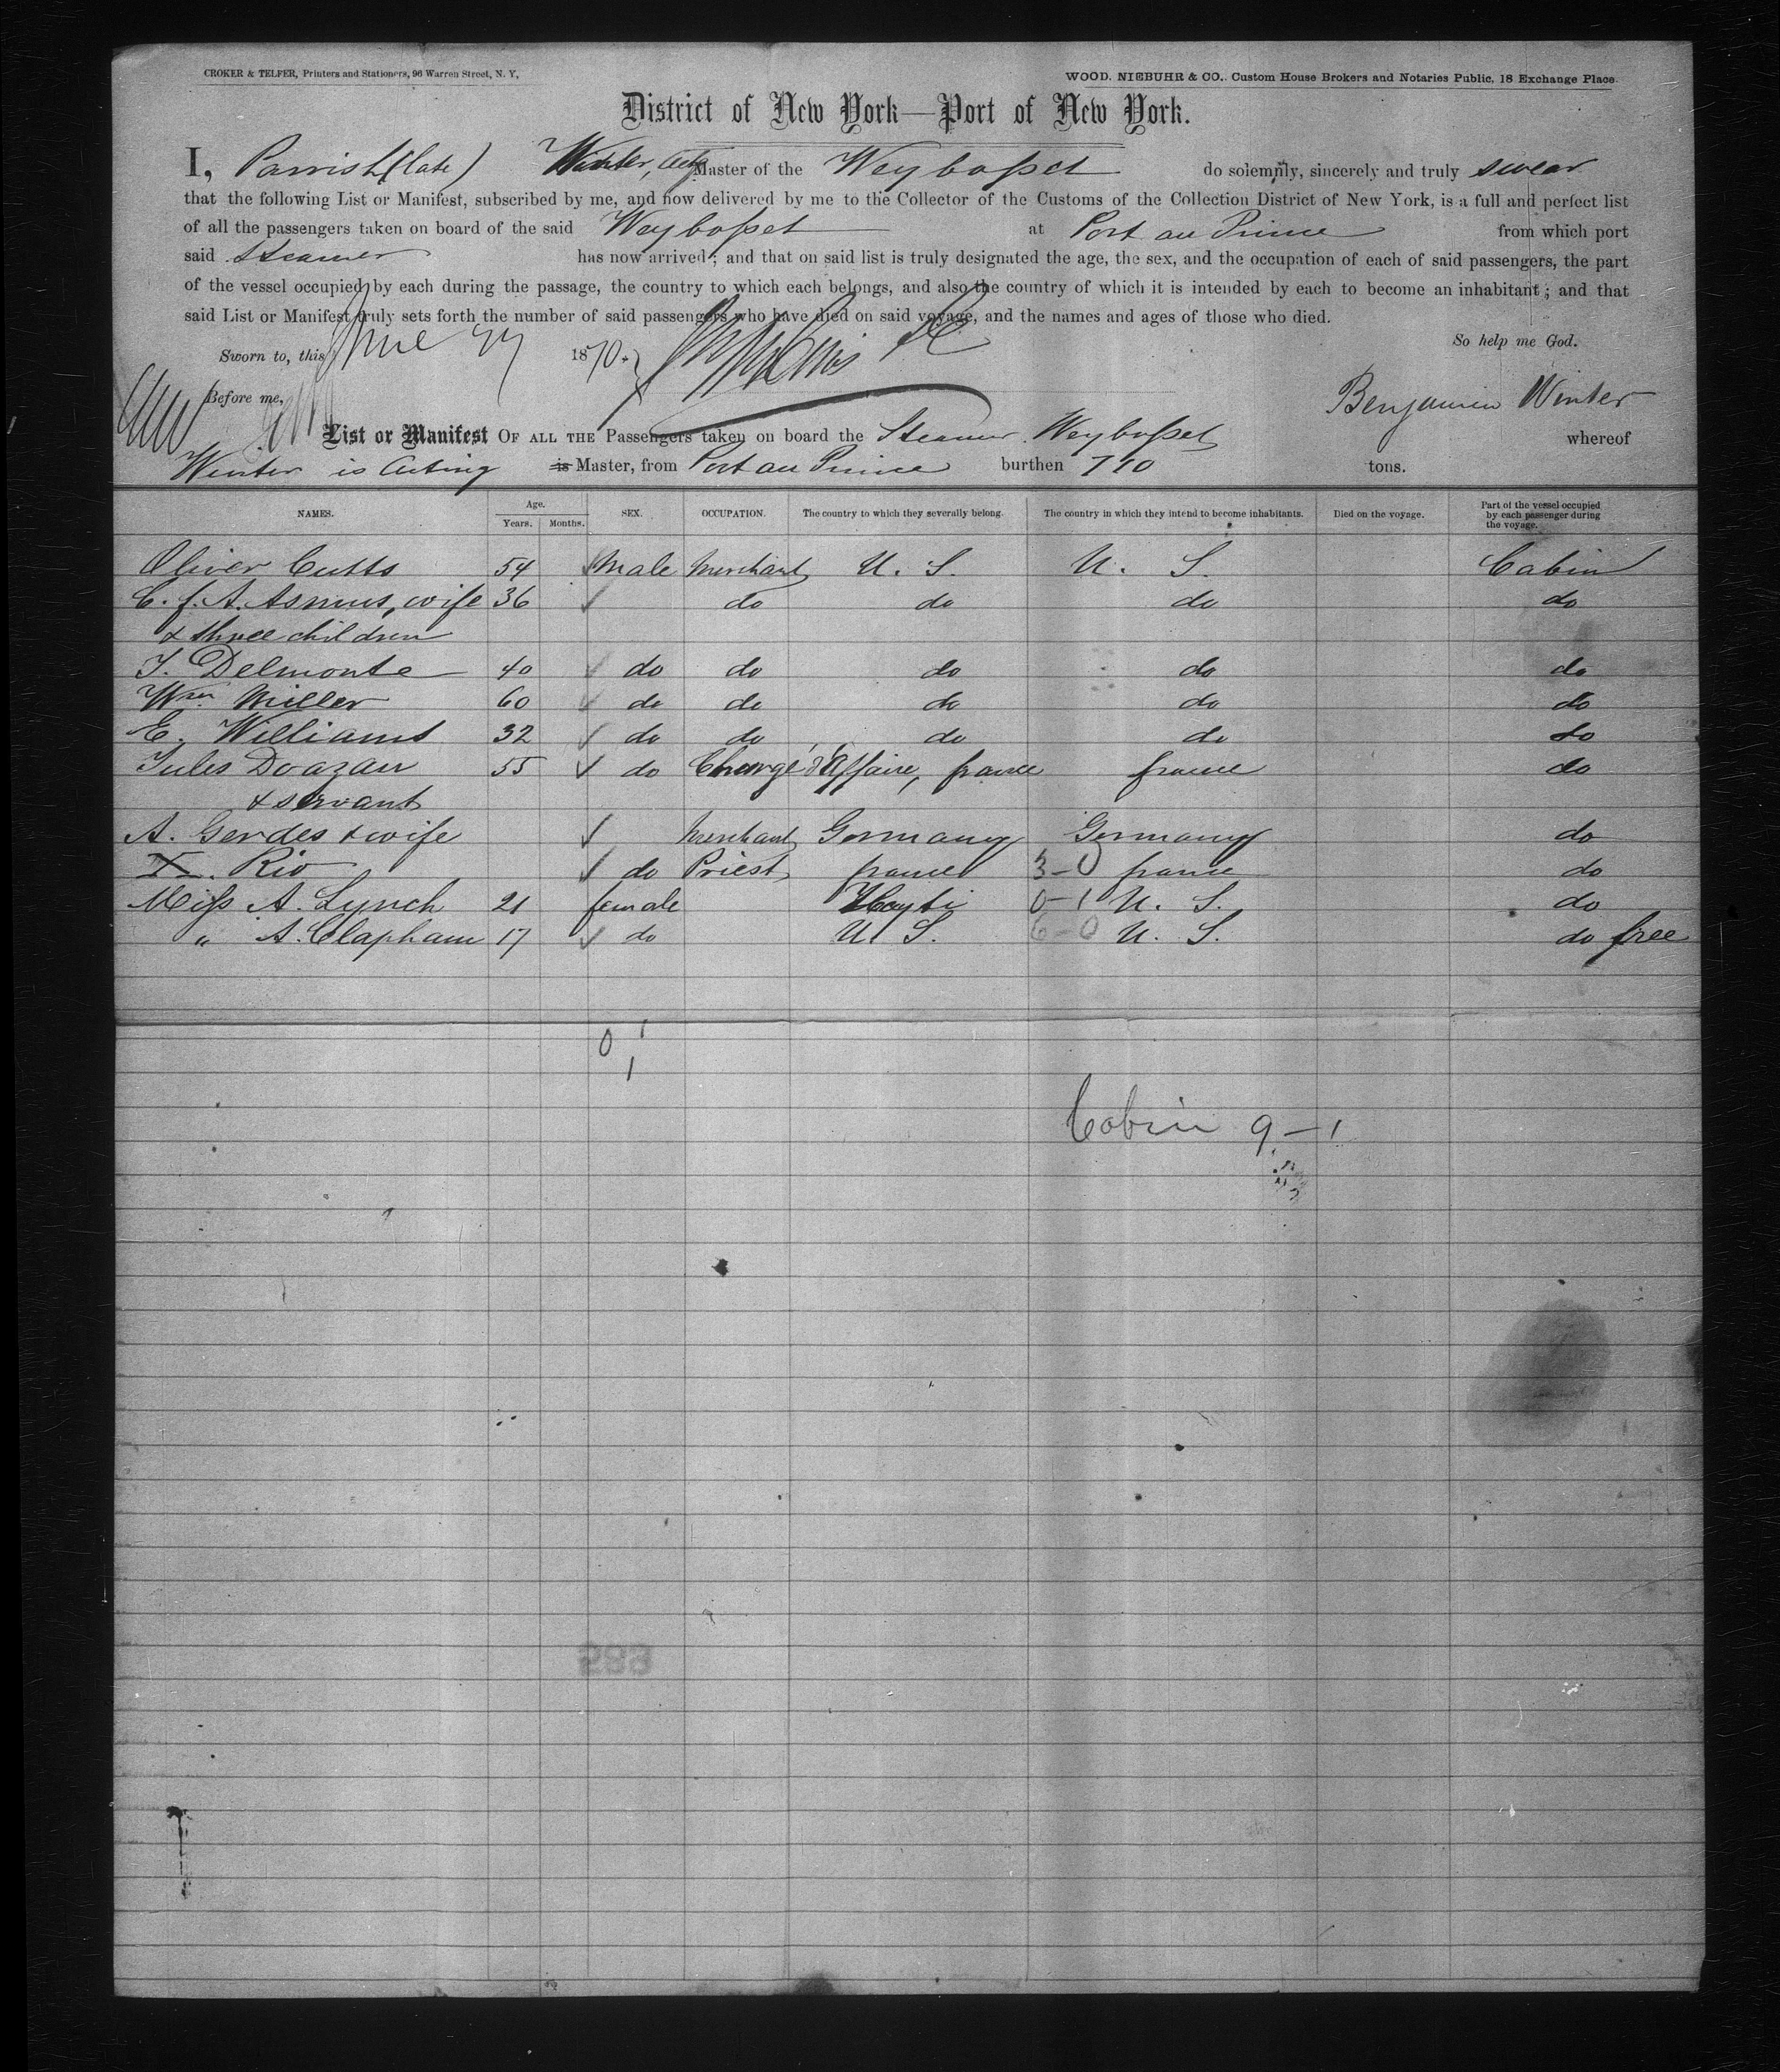 CROKER & TELFER, Printers and Stationers, 96 Warren Street, N. Y,
WOOD. NIEBUHR & CO.. Custom House Brokers and Notaries Public, 18 Exchange Place.
District of New York—Port of New York.
I, Parrish (late) Winter, Actg Master of the Weybosset do solemnly, sincerely and truly swear
that the following List or Manifest, subscribed by me, and now delivered by me to the Collector of the Customs of the Collection District of New York, is a full and perfect list
of all the passengers taken on board of the said Weybosset at Port au Prince from which port
said Steamer has now arrived; and that on said list is truly designated the age, the sex, and the occupation of each of said passengers, the part
of the vessel occupied by each during the passage, the country to which each belongs, and also the country of which it is intended by each to become an inhabitant; and that
said List or Manifest truly sets forth the number of said passengers who have died on said voyage, and the names and ages of those who died.
So help me God.
Sworn to, this June 27 1870.
Before me,
Benjamin Winter
List or Manifest OF ALL THE Passengers taken on board the Steamer Weybosset whereof
Winter is Acting is Master, from Port au Prince burthen 710 tons.
NAMES. Age. Years. Months. SEX. OCCUPATION. The country to which they severally belong. The country in which they intend to become inhabitants. Died on the voyage. Part of the vessel occupied by each passenger during the voyage.
Oliver Cutts 54 Male Merchant U. S. U. S. Cabin
C. f. A. Asmus, wife 36 do do do do
& three children
T. Delmonte 40 do do do do do
Wm Miller 60 do do do do do
E. Williams 32 do do do do do
Jules Doazan 55 do Chargé d'Affaire, france france do
& servant
A. Gerdes & wife Merchant Germany Germany do
X. Rio do Priest france 3-0 france do
Miss A. Lynch 21 female Hayti 0-1 U. S. do
" A. Clapham 17 do U. S. 6-0 U. S. do free
0 1
1
Cabin 9-1